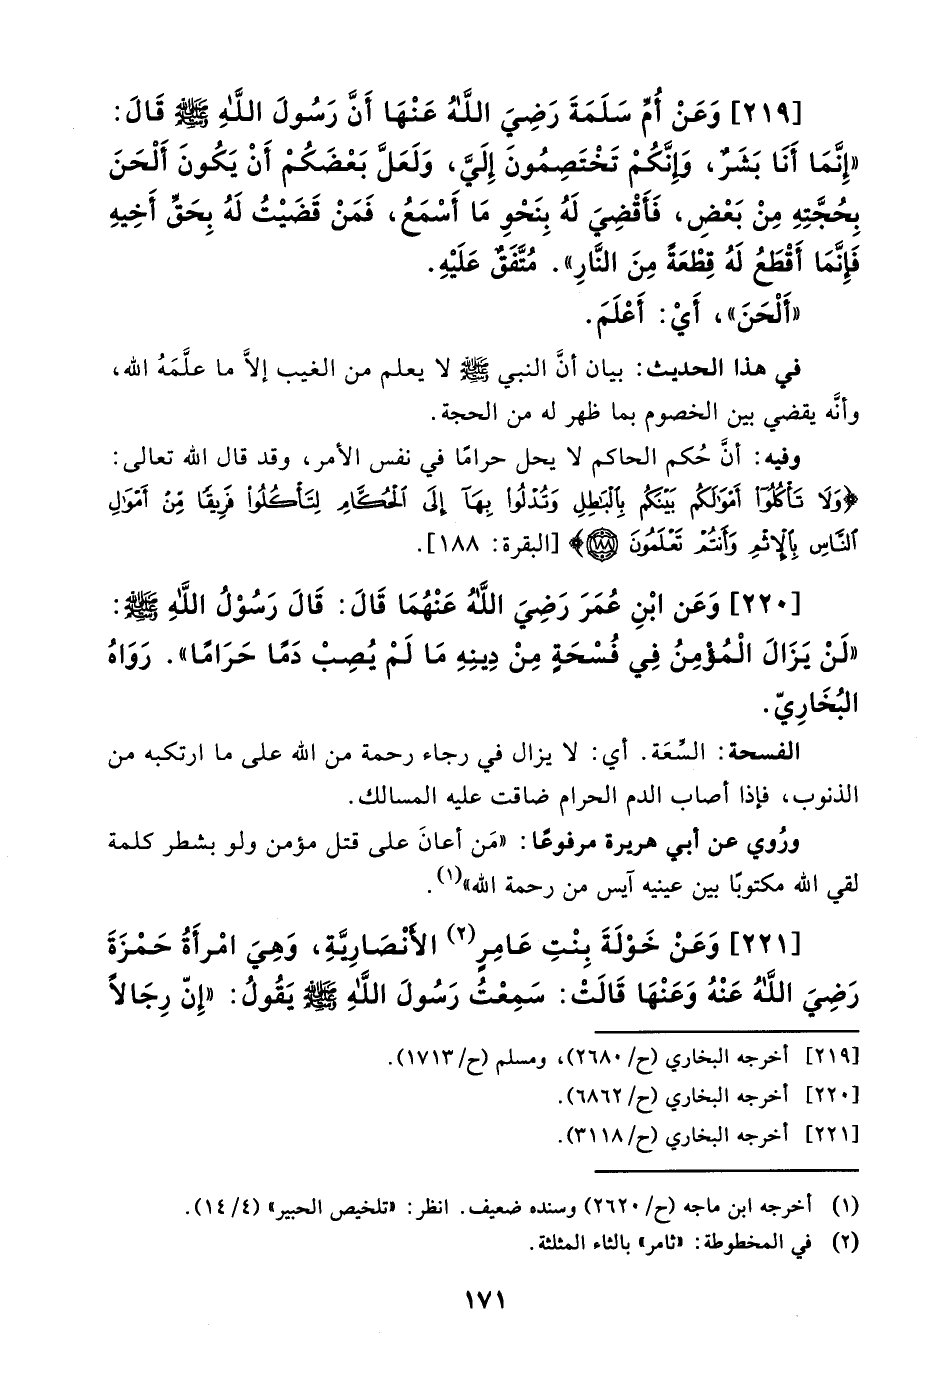 [٢١٩] وَعَنْ أُمِّ سَلَمَةَ رَضِيَ اللَّهُ عَنْهَا أَنَّ رَسُولَ اللَّهِ ﷺ قَالَ:
«إِنَّمَا أَنَا بَشَرٌ، وَإِنَّكُمْ تَخْتَصِمُونَ إِلَيَّ، وَلَعَلَّ بَعْضَكُمْ أَنْ يَكُونَ أَلْحَنَ
بِحُجَّتِهِ مِنْ بَعْضٍ، فَأَقْضِيَ لَهُ بِنَحْوِ مَا أَسْمَعُ، فَمَنْ قَضَيْتُ لَهُ بِحَقِّ أَخِيهِ
فَإِنَّمَا أَقْطَعُ لَهُ قِطْعَةً مِنَ النَّارِ». مُتَّفَقٌ عَلَيْهِ.
«أَلْحَنَ»، أَيْ: أَعْلَمَ.
في هذا الحديث: بيان أنَّ النبي ﷺ لا يعلم من الغيب إلاَّ ما علَّمَهُ الله،
وأنَّه يقضي بين الخصوم بما ظهر له من الحجة.
وفيه: أنَّ حُكم الحاكم لا يحل حرامًا في نفس الأمر، وقد قال الله تعالى:
﴿وَلَا تَأْكُلُوٓا۟ أَمْوَٰلَكُم بَيْنَكُم بِٱلْبَٰطِلِ وَتُدْلُوا۟ بِهَآ إِلَى ٱلْحُكَّامِ لِتَأْكُلُوا۟ فَرِيقًا مِّنْ أَمْوَٰلِ
ٱلنَّاسِ بِٱلْإِثْمِ وَأَنتُمْ تَعْلَمُونَ ﴿١٨٨﴾﴾ [البقرة: ١٨٨].
[٢٢٠] وَعَنِ ابْنِ عُمَرَ رَضِيَ اللَّهُ عَنْهُمَا قَالَ: قَالَ رَسُوْلُ اللَّهِ ﷺ:
«لَنْ يَزَالَ الْمُؤْمِنُ فِي فُسْحَةٍ مِنْ دِينِهِ مَا لَمْ يُصِبْ دَمًا حَرَامًا». رَوَاهُ
البُخَارِيّ.
الفسحة: السَّعَة. أي: لا يزال في رجاء رحمة من الله على ما ارتكبه من
الذنوب، فإذا أصاب الدم الحرام ضاقت عليه المسالك.
ورُوي عن أبي هريرة مرفوعًا: «مَن أعانَ على قتل مؤمن ولو بشطر كلمة
لقي الله مكتوبًا بين عينيه آيس من رحمة الله»(١).
[٢٢١] وَعَنْ خَوْلَةَ بِنْتِ عَامِرٍ(٢) الأَنْصَارِيَّةِ، وَهِيَ امْرَأَةُ حَمْزَةَ
رَضِيَ اللَّهُ عَنْهُ وَعَنْهَا قَالَتْ: سَمِعْتُ رَسُولَ اللَّهِ ﷺ يَقُولُ: «إِنّ رِجَالاً
[٢١٩] أخرجه البخاري (ح/٢٦٨٠)، ومسلم (ح/١٧١٣).
[٢٢٠] أخرجه البخاري (ح/٦٨٦٢).
[٢٢١] أخرجه البخاري (ح/٣١١٨).
(١) أخرجه ابن ماجه (ح/٢٦٢٠) وسنده ضعيف. انظر: «تلخيص الحبير» (١٤/٤).
(٢) في المخطوطة: «ثامر» بالثاء المثلثة.
١٧١